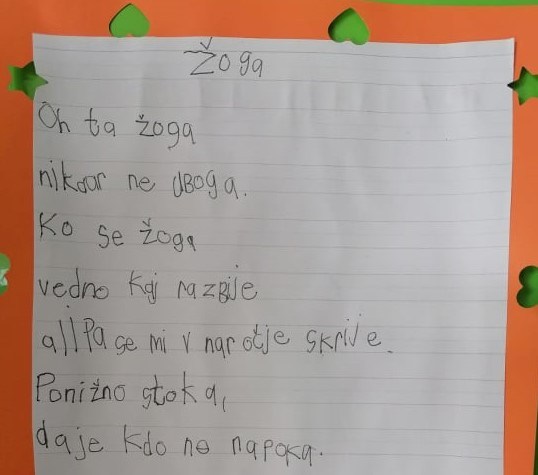 Žoga
Oh ta žoga
nikdar ne uboga.
Ko se žoga
vedno kaj razbije
ali pa se mi v naročje skrije.
Ponižno stoka,
da je kdo ne napoka.